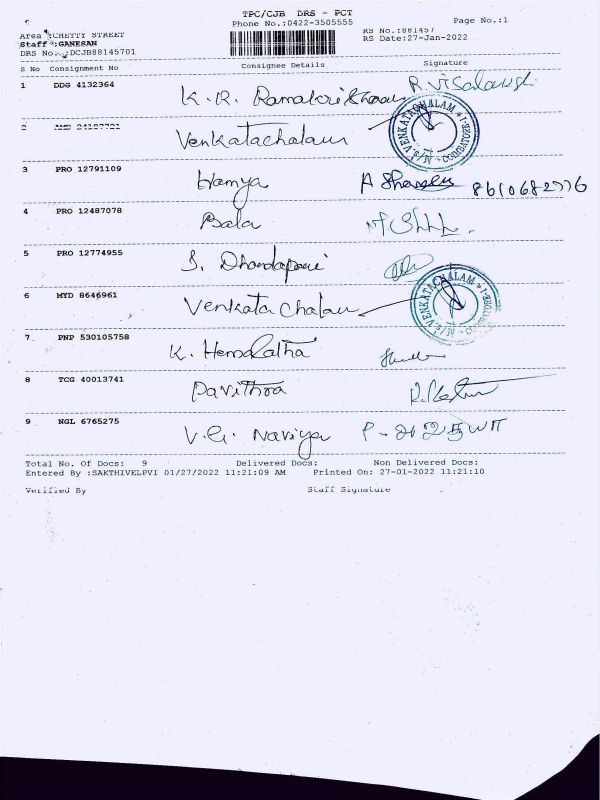 TPC/CJB DRS - PCT
Phone No.:0422-3505555
Page No.:1
Area :CHETTY STREET
Staff :GANESAN
DRS No.:DCJB88145701
RS No.:881457
RS Date:27-Jan-2022
S No Consignment No Consignee Details Signature
1 DDG 4132364 K. R. Ramakrishnan R. Visalakshi
2 Venkatachalam
M/s. VENKATACHALAM * COIMBATORE-1
3 PRO 12791109 Hamya A 8610682776
4 PRO 12487078 Bala
5 PRO 12774955 S. Dhandapani
6 MYD 8646961 Venkatachalam
M/s. VENKATACHALAM * COIMBATORE-1
7 PNP 530105758 K. Hemalatha
8 TCG 40013741 Pavithra
9 NGL 6765275 V.G. Naviya
Total No. Of Docs: 9 Delivered Docs: Non Delivered Docs:
Entered By :SAKTHIVELPVI 01/27/2022 11:21:09 AM Printed On: 27-01-2022 11:21:10
Verified By Staff Signature